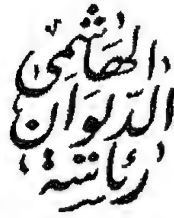 الهَاشمِى
الدّيوَان
رئَاسَة